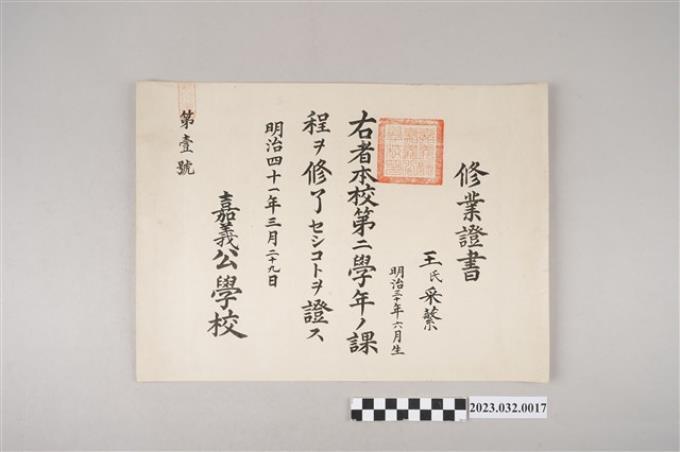 修業證書
王氏采蘩
明治三十年六月生
右者本校第二學年ノ課
程ヲ修了セシコトヲ證ス
明治四十一年三月二十九日
嘉義公學校
第壹號
2023.032.0017